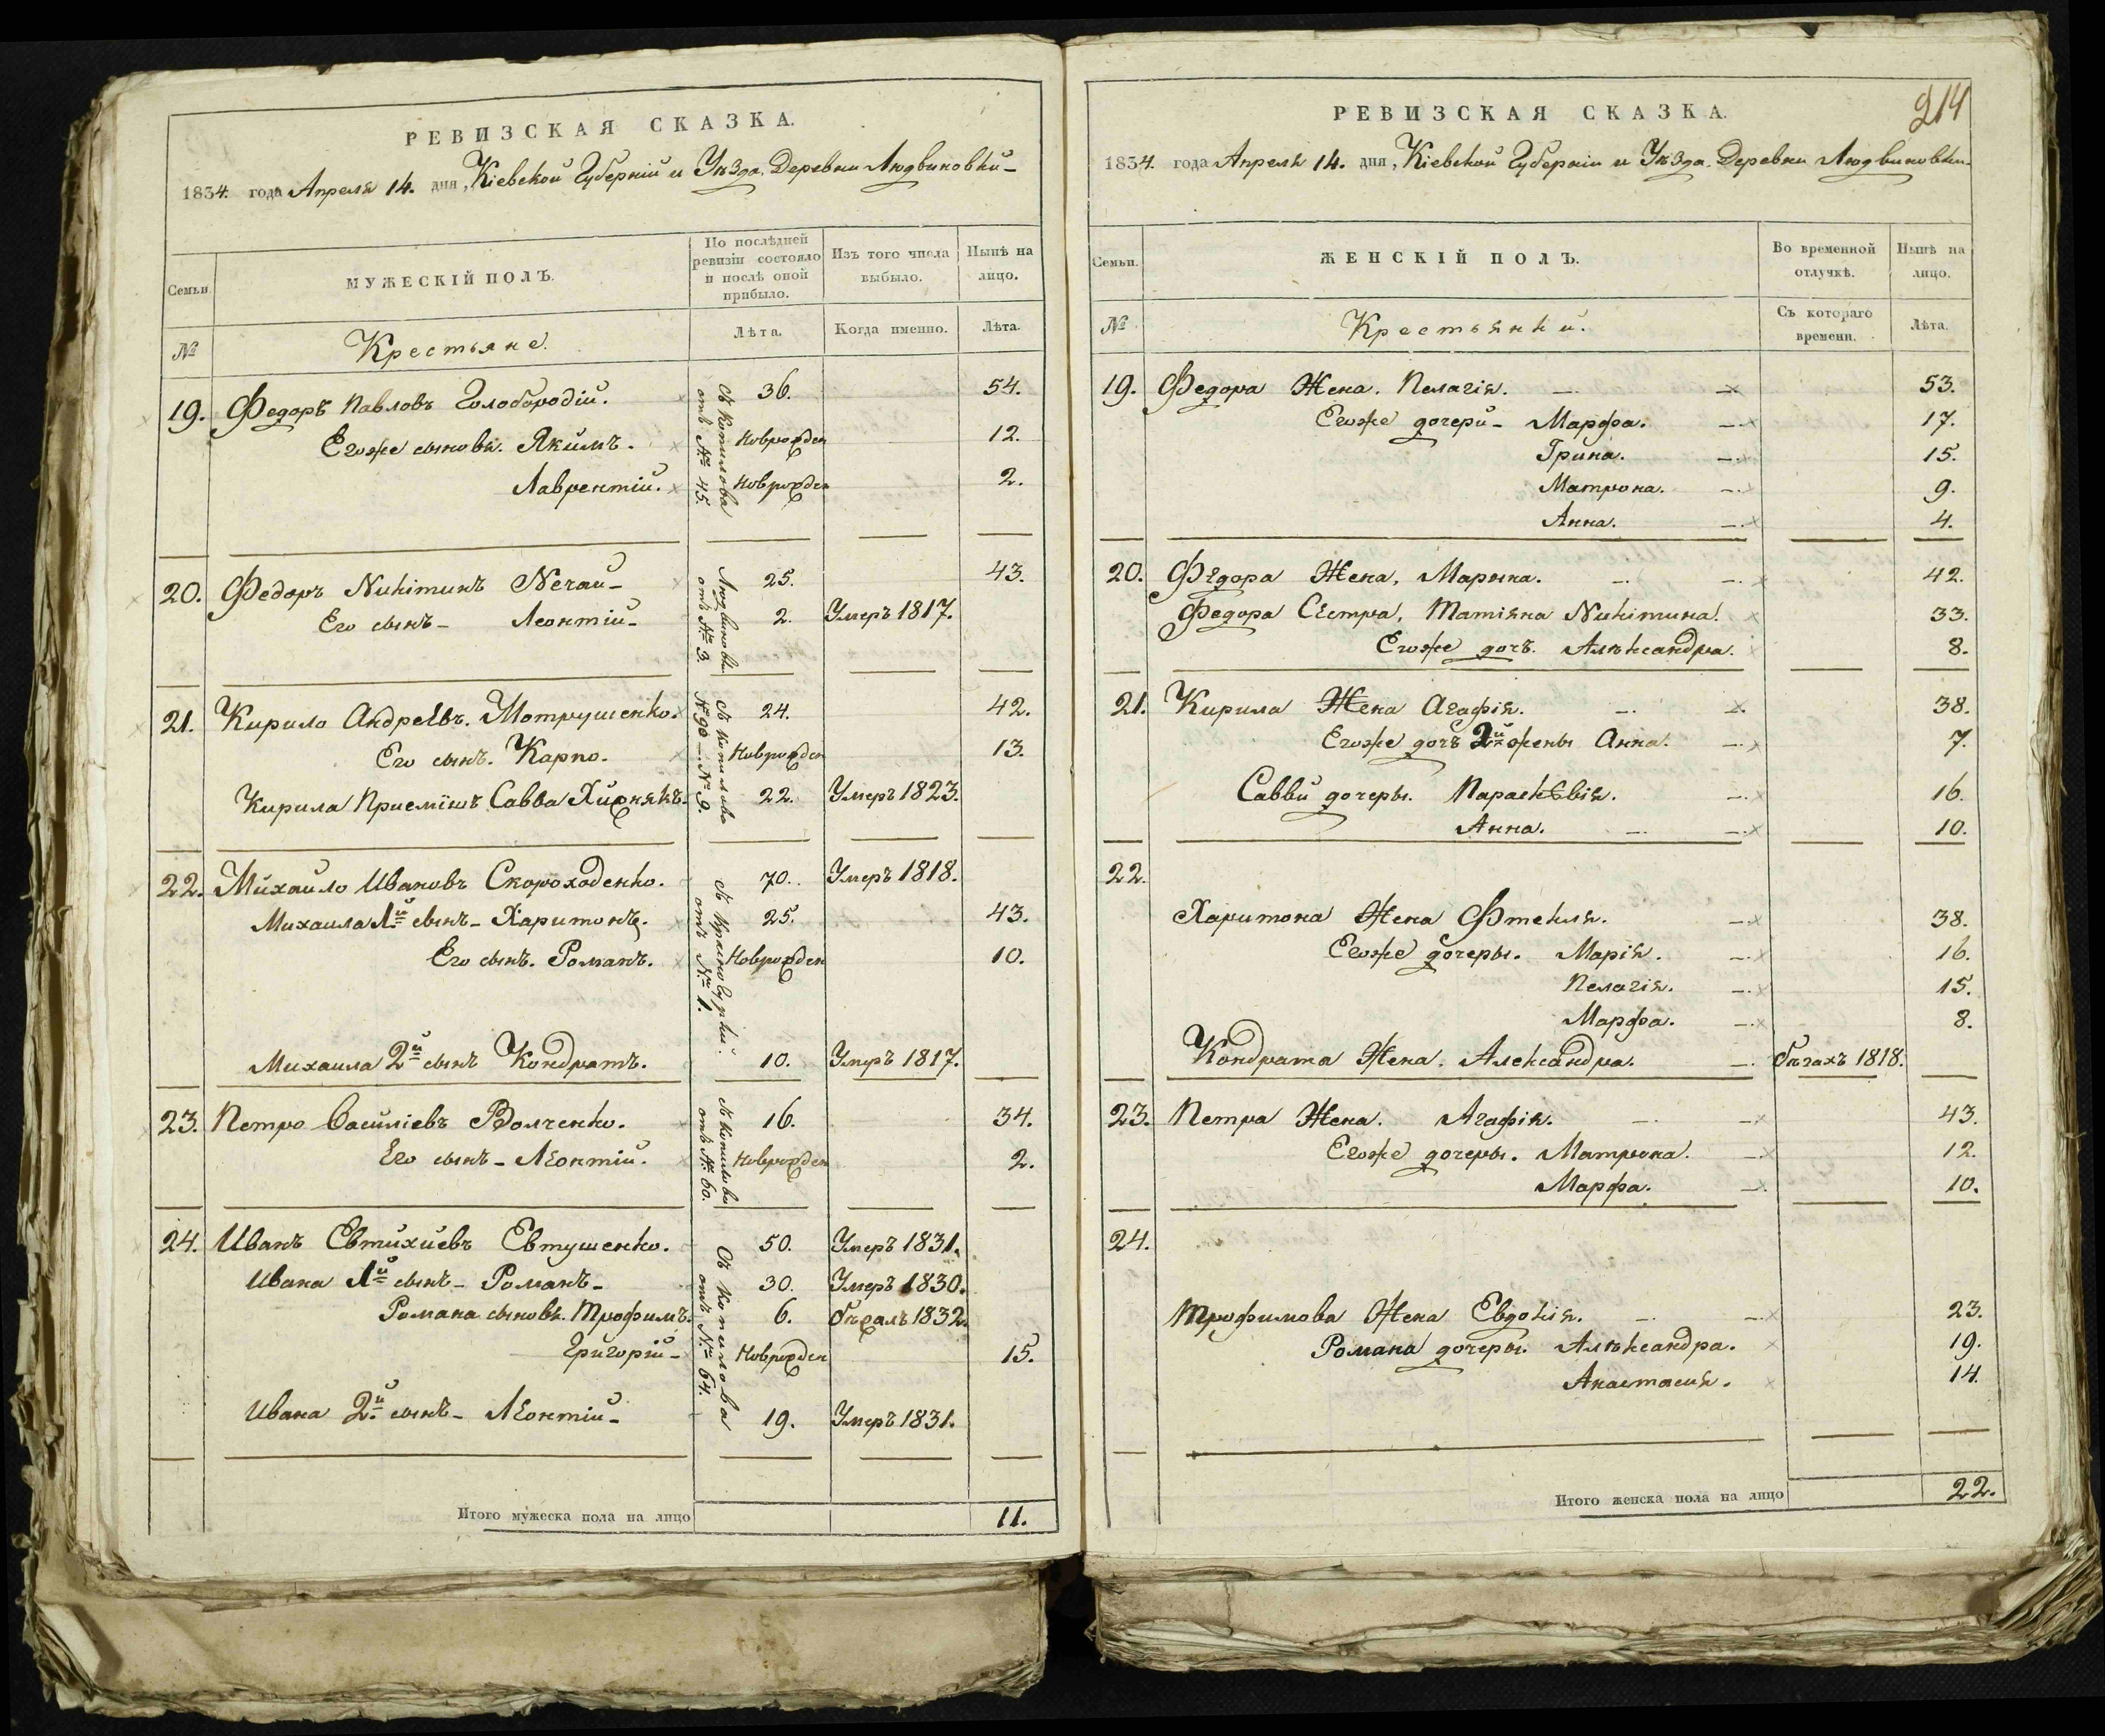 РЕВИЗСКАЯ СКАЗКА.
1834. года Апреля 14. дня, Кіевской Губерніи и Уѣзда. Деревни Людвиновки
Семьи
МУЖЕСКІЙ ПОЛЪ.
По послѣдней ревизіи состояло и послѣ оной прибыло.
Изъ того числа выбыло.
Нынѣ на лицо.
№
Крестьяне.
Лѣта.
Когда именно.
Лѣта.
19. Федоръ Павловъ Голобородій. 36. 54.
Егоже сыновья. Якимъ. Новорожден 12.
Лаврентій. Новорожден 2.
съ Копилова
отъ № 45.
20. Федоръ Никитинъ Нечай 25. 43.
Его сынъ Леонтій 2. Умеръ 1817.
Людвиновки
отъ № 3.
21. Кирило Андреевъ. Мотрушенко. 24. 42.
Его сынъ. Карпо. Новорожден 13.
Кирила Приемышъ Савва 22. Умеръ 1823.
съ Копилова
№ 90 — № 9.
22. Михайло Ивановъ Скороходенко. 70. Умеръ 1818.
Михаила 1й сынъ Харитонъ. 25. 43.
Его сынъ. Романъ. Новорожден 10.
Михаила 2й сынъ Кондратъ. 10. Умеръ 1817.
отъ № 1.
23. Петро Василіевъ Волченко. 16. 34.
Его сынъ Леонтій. Новорожден 2.
съ Копилова
отъ № 60.
24. Иванъ Евтихіевъ Евтушенко. 50. Умеръ 1831.
Ивана 1й сынъ Романъ 30. Умеръ 1830.
Романа сыновья. Трофимъ. 6. бѣжалъ 1832.
Григорій Новорожден 15.
Ивана 2й сынъ Леонтій 19. Умеръ 1831.
съ Копилова
отъ № 64.
Итого мужеска пола на лицо 11.
214
РЕВИЗСКАЯ СКАЗКА.
1834. года Апреля 14. дня, Кіевской Губерніи и Уѣзда. Деревни Людвиновки
Семьи.
ЖЕНСКІЙ ПОЛЪ.
Во временной отлучкѣ.
Нынѣ на лицо.
№
Крестьянки.
Съ котораго времени.
Лѣта.
19. Федора Жена. Пелагія. 53.
Егоже дочери Марфа. 17.
Ірина. 15.
Матрона. 9.
Анна. 4.
20. Федора Жена, Марына. 42.
Федора Сестра, Татіяна Никитина. 33.
Егоже дочь. Алѣксандра. 8.
21. Кирила Жена Агафія. 38.
Егоже дочь 2й жены Анна. 7.
Саввы дочеры. Параскевія. 16.
Анна. 10.
22.
Харитона Жена Фтекля. 38.
Егоже дочеры. Марія. 16.
Пелагія. 15.
Марфа. 8.
Кондрата Жена. Александра. бѣгахъ 1818.
23. Петра Жена. Агафія. 43.
Егоже дочеры. Матрона. 12.
Марфа. 10.
24.
Трофимова Жена Евдокія. 23.
Романа дочеры. Алѣксандра. 19.
Анастасия. 14.
Итого женска пола на лицо 22.